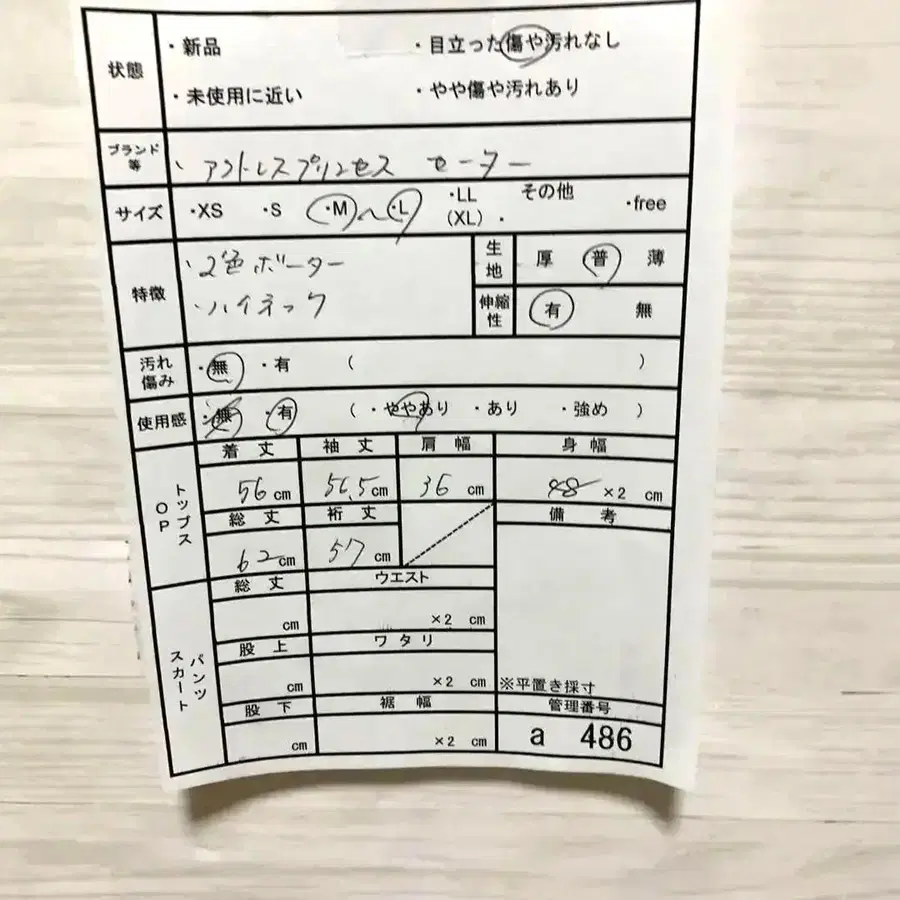 状態
・新品
・目立った傷や汚れなし
・未使用に近い
・やや傷や汚れあり
ブランド等
、アクトレスプリンセス セーター
サイズ
・XS ・S ・M 〜 ・L ・LL (XL)・ その他 ・free
特徴
、2色ボーター
・ハイネック
生地
厚 普 薄
伸縮性
有 無
汚れ傷み
・無 ・有 ( )
使用感
・無 ・有 ( ・ややあり ・あり ・強め )
トップス OP
着丈 袖丈 肩幅 身幅
56 cm 56.5 cm 36 cm 48 ×2 cm
総丈 裄丈 備考
62 cm 57 cm
パンツ スカート
総丈 ウエスト
cm ×2 cm
股上 ワタリ
cm ×2 cm
※平置き採寸
股下 裾幅 管理番号
cm ×2 cm a 486